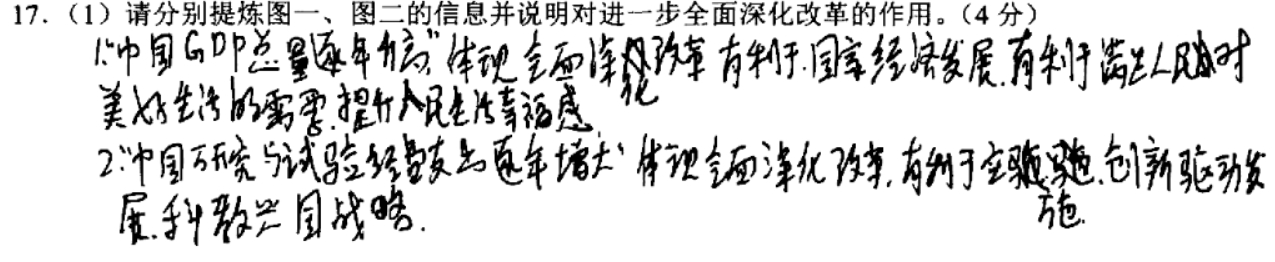 17.（1）请分别提炼图一、图二的信息并说明对进一步全面深化改革的作用。（4 分）
1."中国GDP总量逐年升高"体现全面深化改革有利于国家经济发展.有利于满足人民对
美好生活的需要.提升人民生活幸福感.
2."中国研究与试验经费支出逐年增大"体现全面深化改革.有利于实施创新驱动发
展.科教兴国战略.